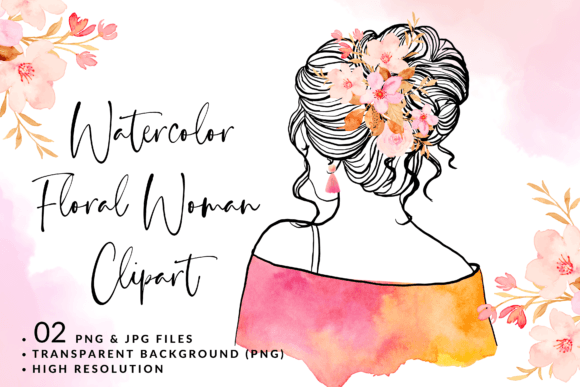 Watercolor
Floral Woman
Clipart
• 02 PNG & JPG FILES
• TRANSPARENT BACKGROUND (PNG)
• HIGH RESOLUTION